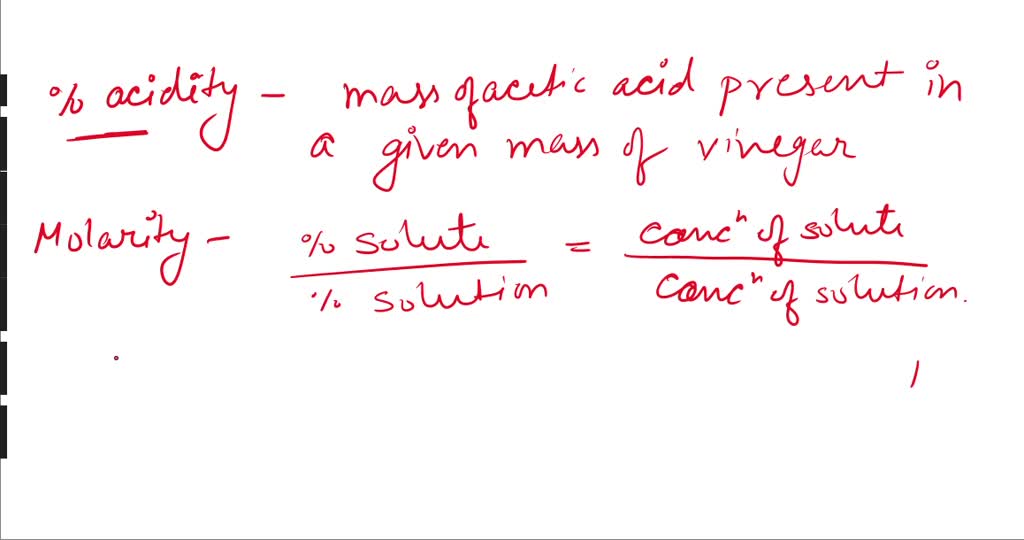 % acidity - mass of acetic acid present in
a given mass of vinegar
Molarity - % solute / % solution = concⁿ of solute / concⁿ of solution.